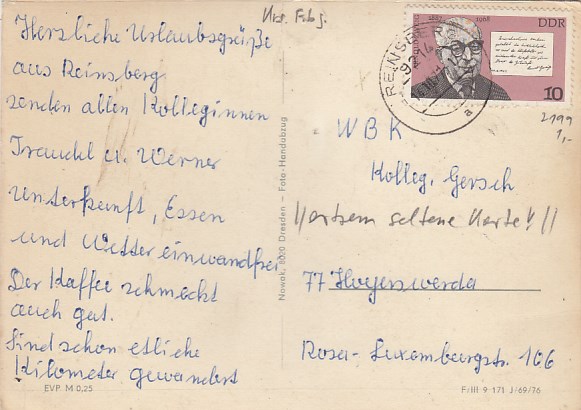 Herzliche Urlaubsgrüße
aus Reinsberg
senden allen Kolleginnen
Traudel u. Werner
Unterkunft, Essen
und Wetter einwandfrei
Der Kaffee schmeckt
auch gut.
Sind schon etliche
Kilometer gewandert
EVP M 0,25
Nowak, 8020 Dresden – Foto-Handabzug
1968
DDR
10
REINSBERG
a
2199
1,-
WBK
Kolleg. Gersch
seltene Karte! //
77 Hoyerswerda
Rosa-Luxemburgstr. 106
F/III 9 171 J/69/76